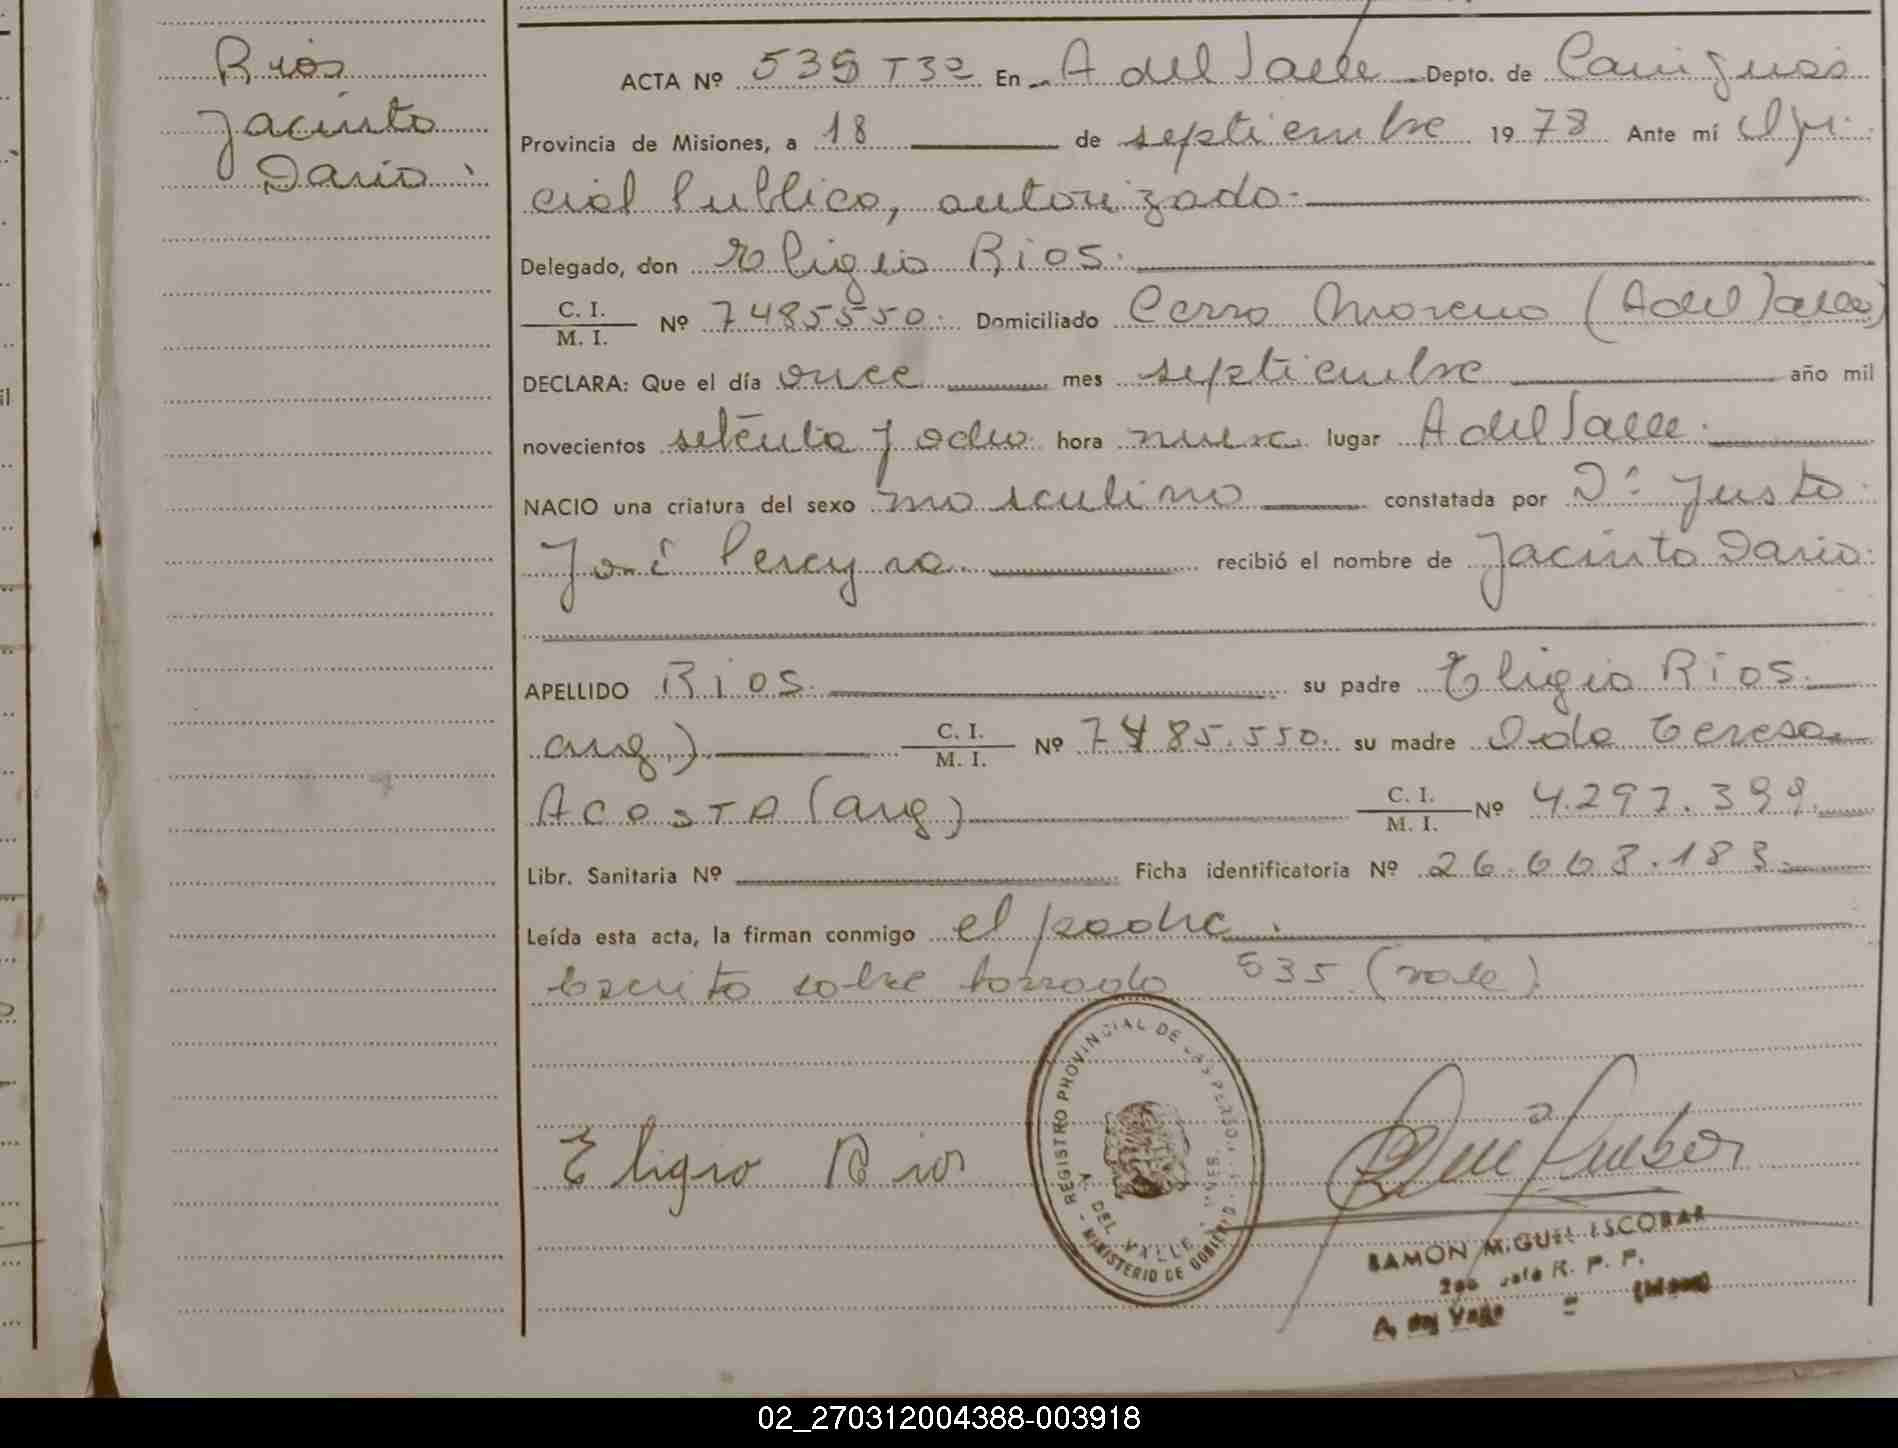 Rios
Jacinto
Dario
ACTA Nº 535 T3º En A del Valle Depto. de Cainguas
Provincia de Misiones, a 18 de septiembre 1978 Ante mí Ofi
cial Publico, autorizado
Delegado, don Eligio Rios
C. I. / M. I. Nº 7485550 Domiciliado Cerro Moreno (A del Valle)
DECLARA: Que el día once mes septiembre año mil
novecientos setenta y ocho hora nueve lugar A del Valle
NACIO una criatura del sexo masculino constatada por Dr Justo
José Pereyra recibió el nombre de Jacinto Dario
APELLIDO Rios su padre Eligio Rios
arg) C. I. / M. I. Nº 7485.550 su madre Ida Teresa
ACOSTA (arg) C. I. / M. I. Nº 4.297.399
Libr. Sanitaria Nº Ficha identificatoria Nº 26.668.183
Leída esta acta, la firman conmigo el padre.
Escrito sobre borrado 535 (vale)
Eligio Rios
REGISTRO PROVINCIAL DE LAS PERSONAS
A. DEL VALLE
MINISTERIO DE GOBIERNO
RAMON MIGUEL ESCOBAR
R. P. P.
A. del Valle (Mnes)
02_270312004388-003918